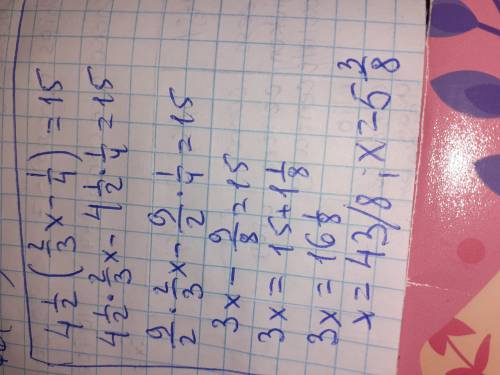 4 1/2 (2/3 x - 1/4) = 15
4 1/2 · 2/3 x - 4 1/2 · 1/4 = 15
9/2 · 2/3 x - 9/2 · 1/4 = 15
3x - 9/8 = 15
3x = 15 + 1 1/8
3x = 16 1/8
x = 43/8 ; x = 5 3/8